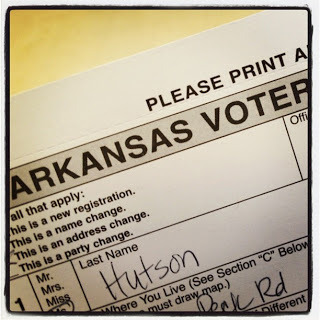 PLEASE PRINT A
ARKANSAS VOTER
Offi
all that apply:
This is a new registration.
This is a name change.
This is an address change.
This is a party change.
1
Mr.
Mrs.
Miss
Last Name
Hutson
Where You Live (See Section "C" Below
must draw map.)
Rd